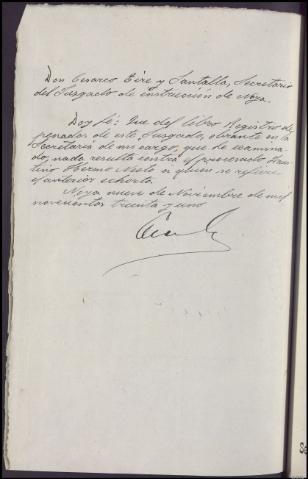 Don Cesareo Eire y Santalla, Secretario
del Juzgado de instrucción de Noya.
Doy fé: Que del libro Registro de
penados de este Juzgado, obrante en la
Secretaría de mi cargo, que he examina-
do, nada resulta contra el procesado Faus-
tino Hermo Nieto a quien se refiere
el anterior exhorto.
Noya nueve de Noviembre de mil
novecientos treinta y uno
Se